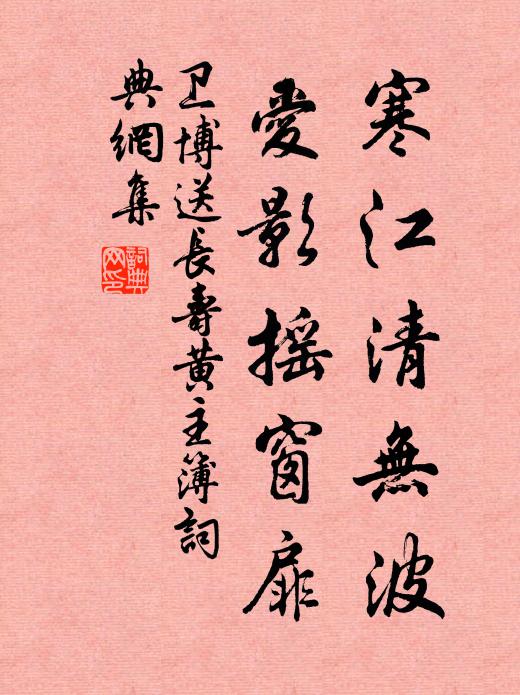 寒江清無波
愛影摇窗扉
卫博送長壽黃主簿詞
典網集
詞典
网印